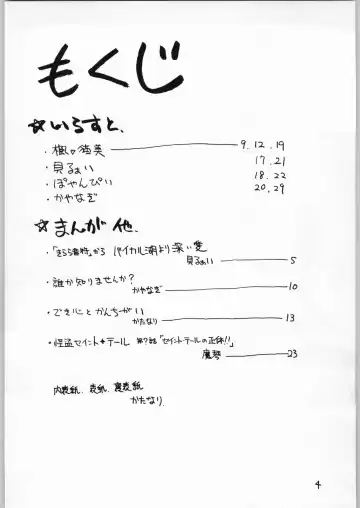 もくじ
☆いらすと、
・楓々猫美 9.12.19
・見るぁぃ 17.21
・ぽやんぴい 18.22
・かやなぎ 20,29
☆まんが他、
・「きらら音符」から バイカル湖より深い愛
見るぁぃ 5
・誰か知りませんか?
かやなぎ 10
・できごことかんちがい
かたなり 13
・怪盗セイント★テール 第?話「セイントテールの正体!!」
魔琴 23
内表紙、表紙、裏表紙
かたなり
4